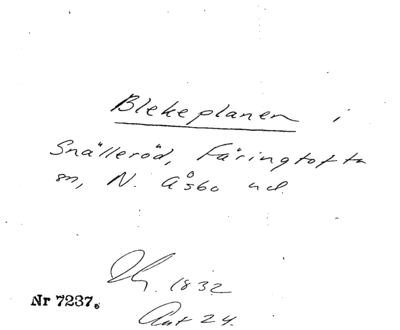 Blekeplanen i
Snälleröd, Färingtofta
sn, N. Åsbo hd.
1832
Nr 7237.
Ant 24.